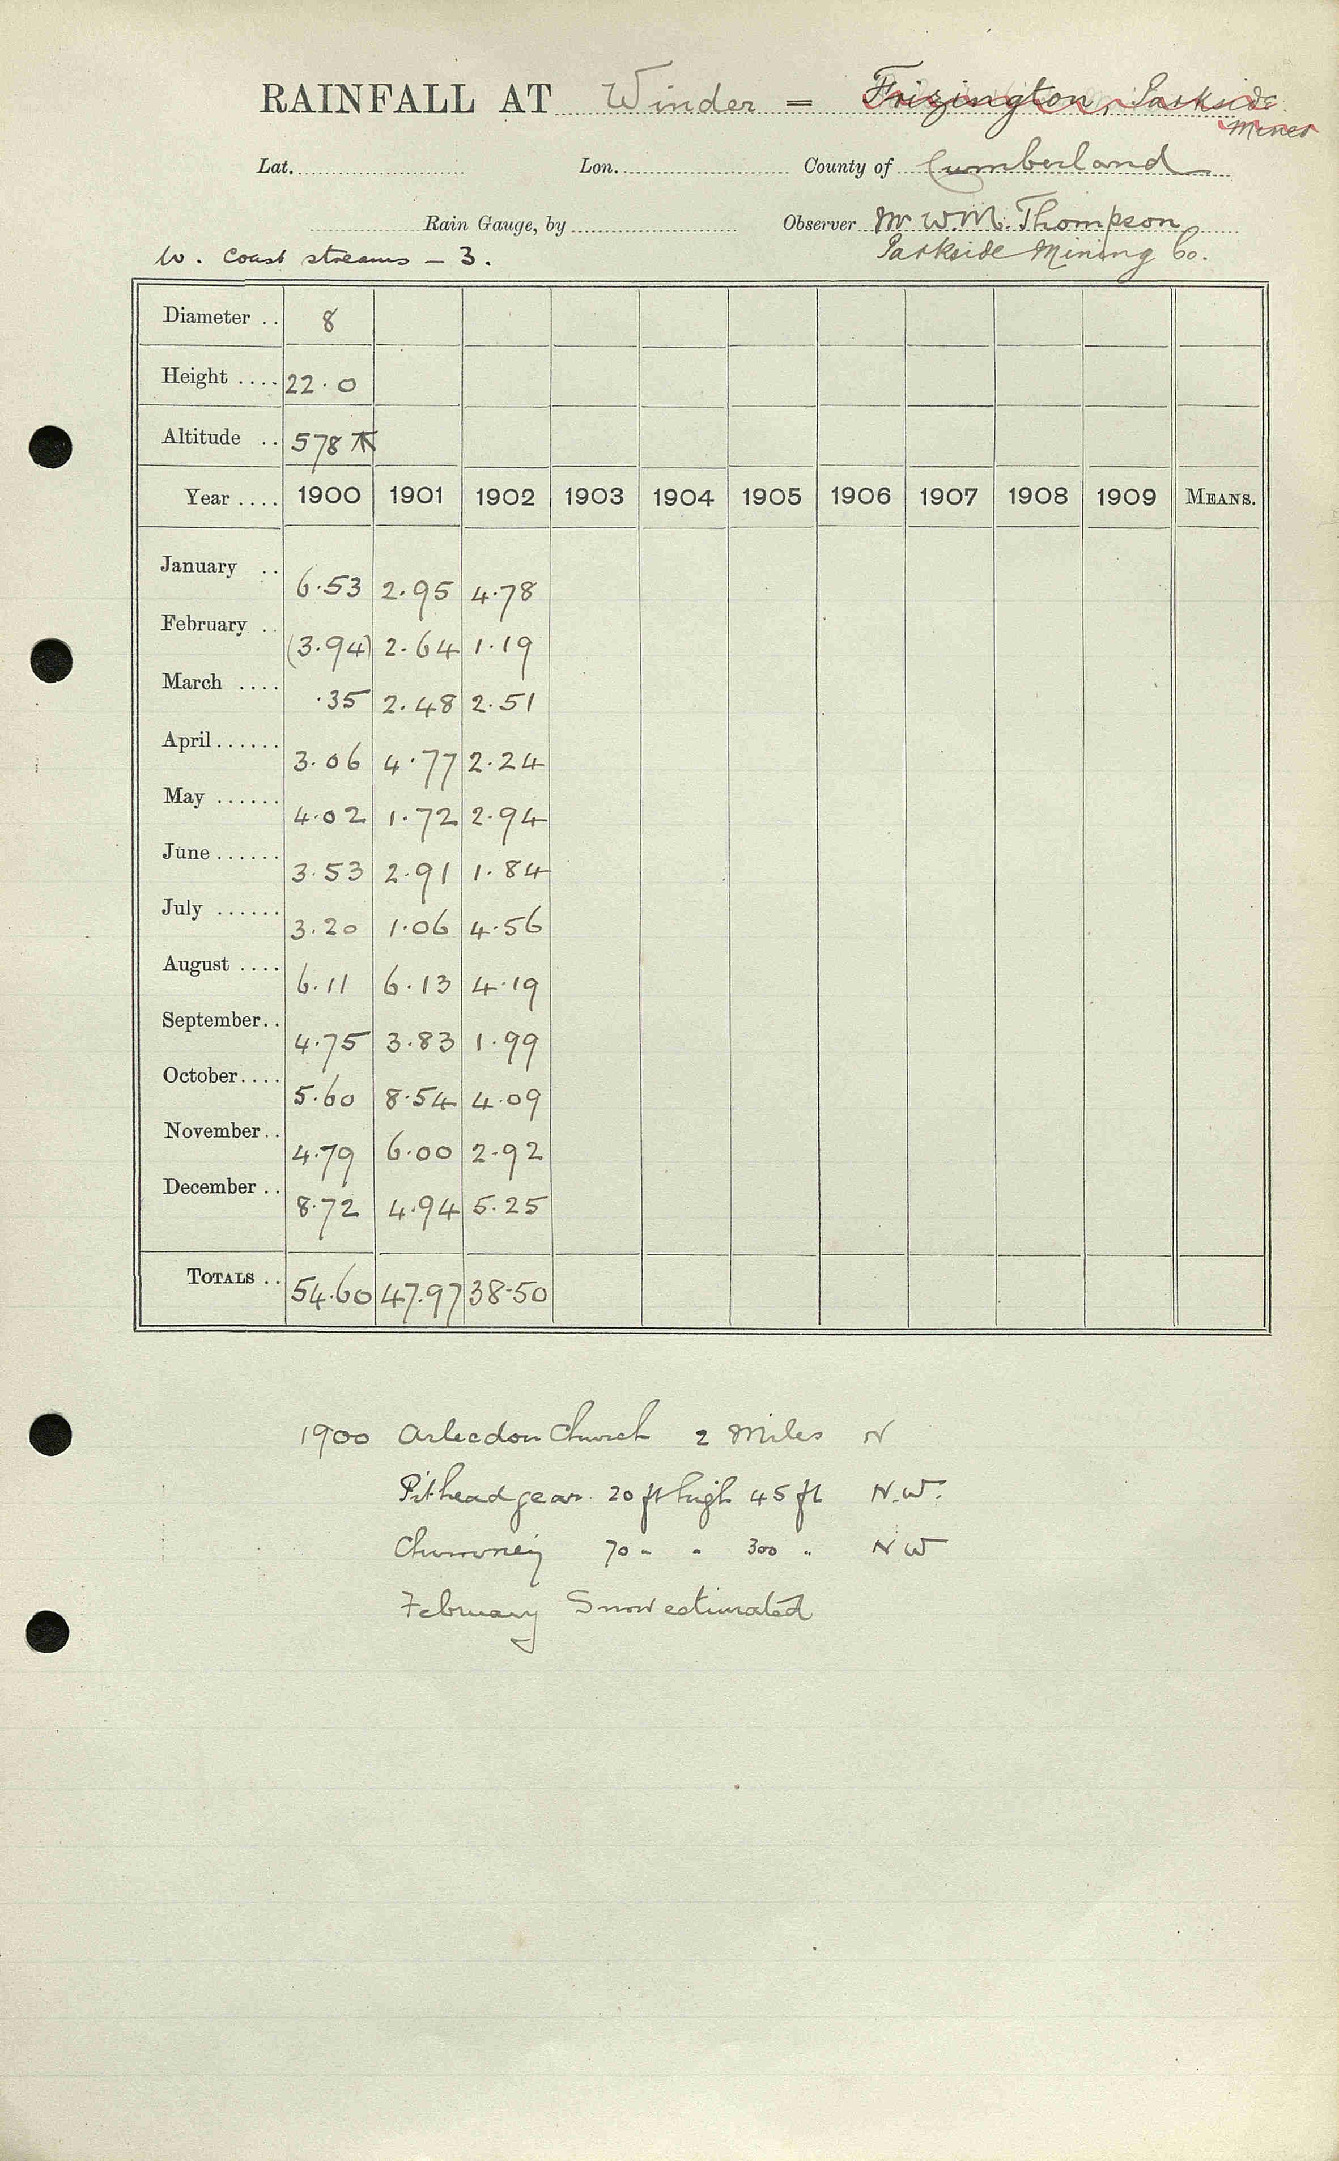 RAINFALL AT Winder = Frizington, Parkside
Mines
Lat. Lon. County of Cumberland
Rain Gauge, by Observer Mr W.M. Thompson
W. Coast streams - 3. Parkside Mining Co.
Diameter .. 8
Height .... 22.0
Altitude .. 578
Year .... 1900 1901 1902 1903 1904 1905 1906 1907 1908 1909 MEANS.
January .. 6.53 2.95 4.78
February .. (3.94) 2.64 1.19
March .... .35 2.48 2.51
April...... 3.06 4.77 2.24
May ...... 4.02 1.72 2.94
June...... 3.53 2.91 1.84
July ...... 3.20 1.06 4.56
August .... 6.11 6.13 4.19
September.. 4.75 3.83 1.99
October.... 5.60 8.54 4.09
November.. 4.79 6.00 2.92
December .. 8.72 4.94 5.25
TOTALS .. 54.60 47.97 38.50
1900 Arlecdon Church 2 Miles N
Pithead gear. 20 ft high 45 ft N.W.
Chimney 70 " " 300 " NW
February Snow estimated